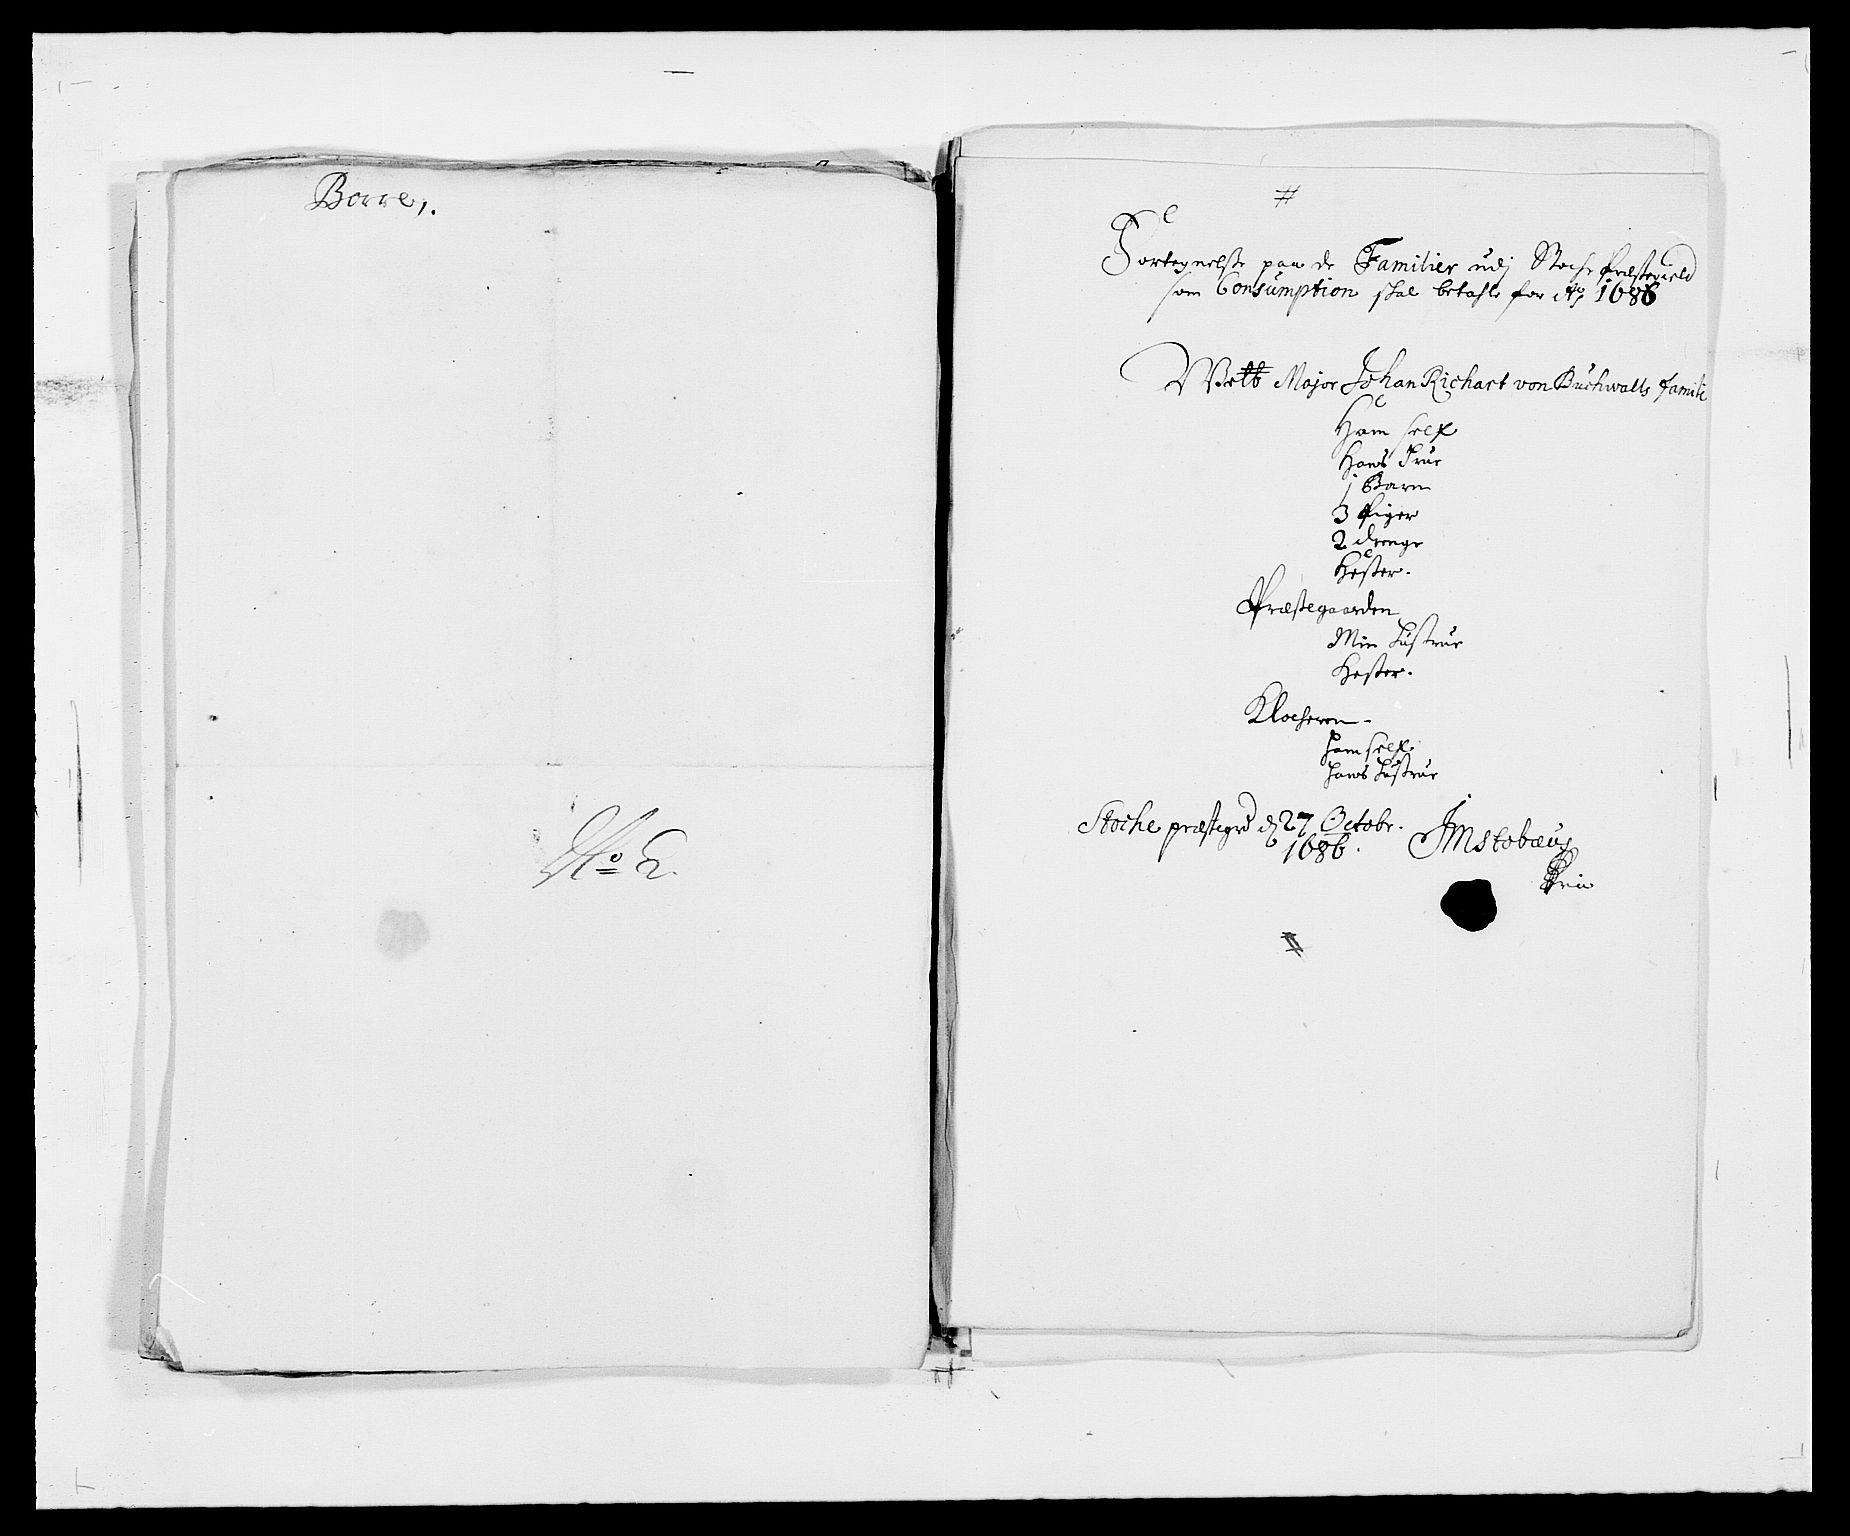 Borre,.
No 2.
#
Fortegnelse paa de Familier udj Stoche Præstegield
som Consumption skal betahle for Ao 1686
Major Johan Richart von Buchwalts famili
Ham self
Hans Frue
1 Barn
3 Piger
2 drenge
Hester.
Præstegaarden
Min Hustrue
Hester.
Klocheren.
ham self.
hans Hustrue
Stoche præstegrd d 27 Octobr.
1686.
JMstobæus
#